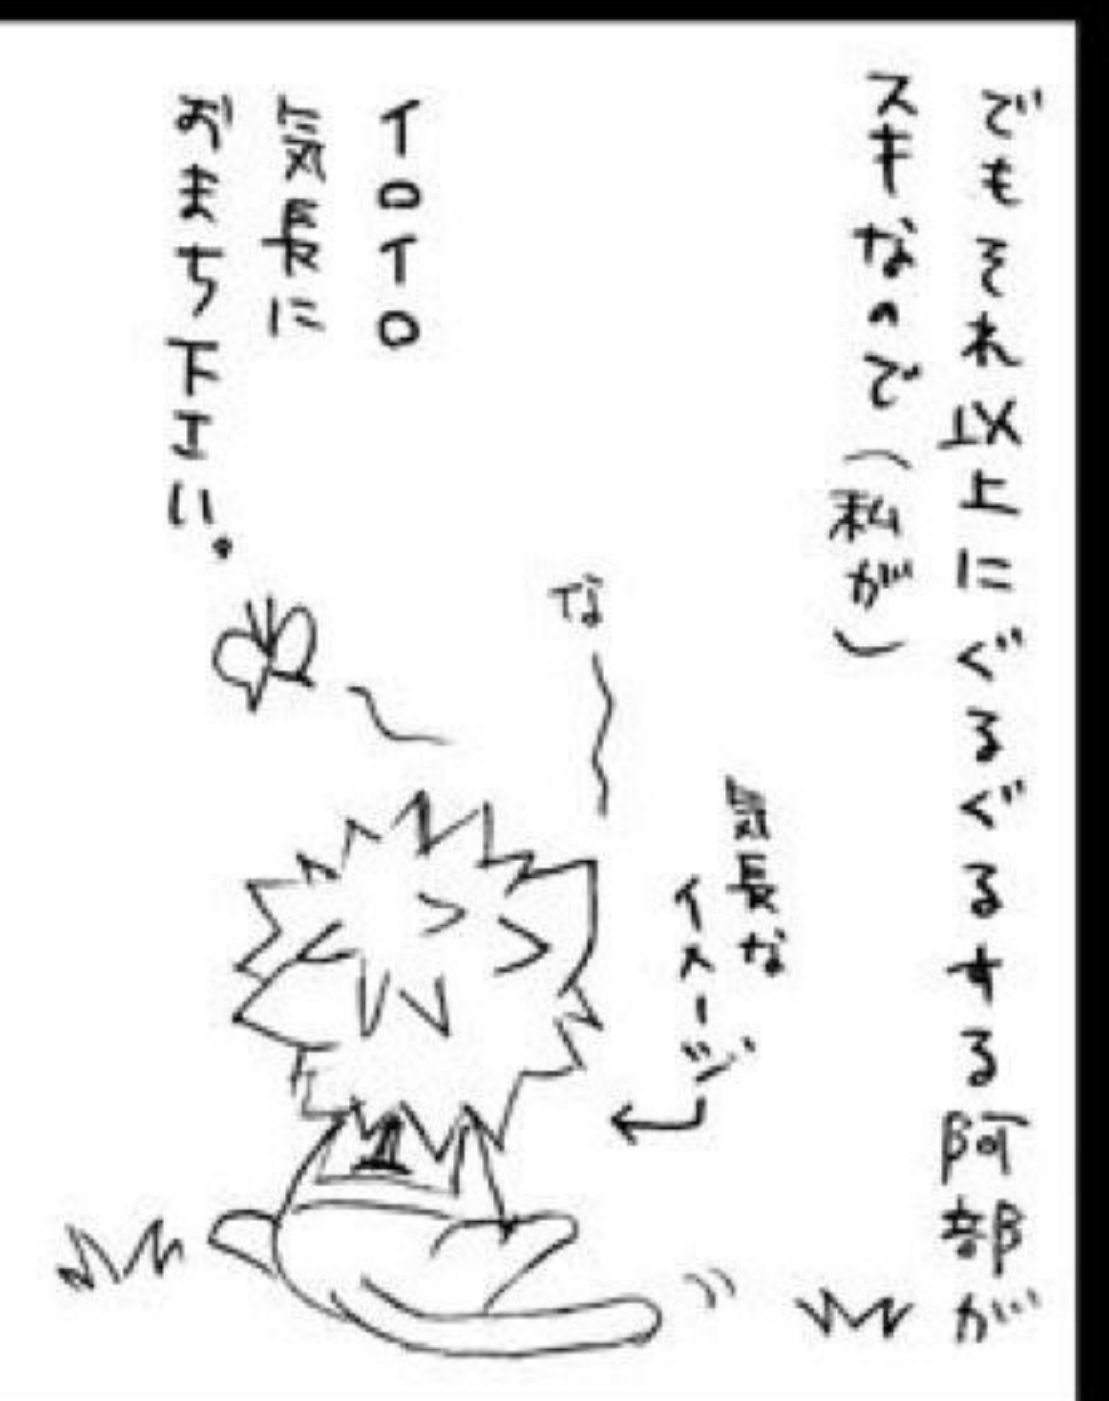 でもそれ以上にぐるぐるする阿部が
スキなので(私が)
イロイロ
気長に
おまち下さい。
な
気長な
イメージ